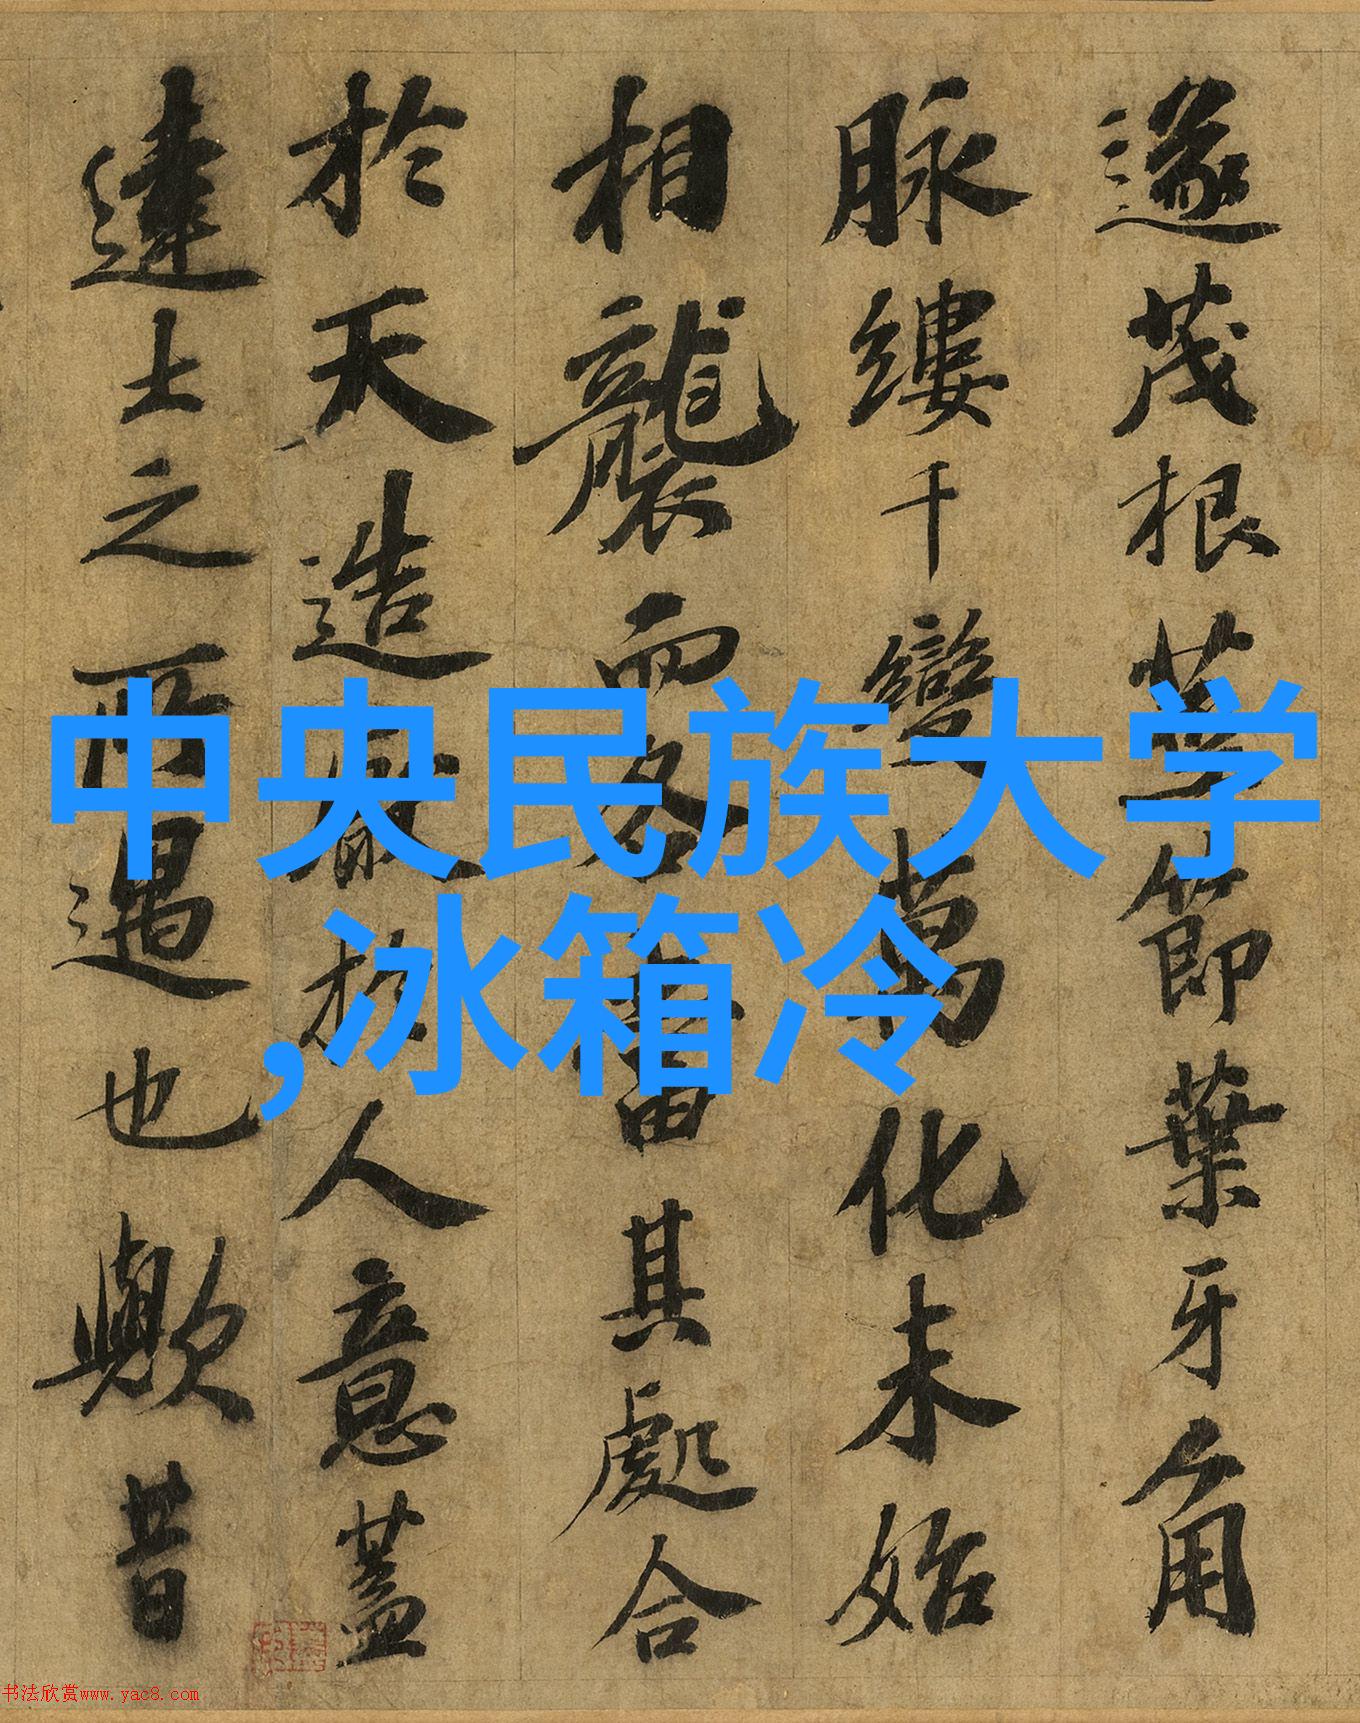 遂茂根莖節葉牙角
脉縷千變萬化未始
相襲而各當其處合
於天造厭於人意蓋
達士之所遇也歟昔
中央民族大学
,冰箱冷
书法欣赏www.yac8.com